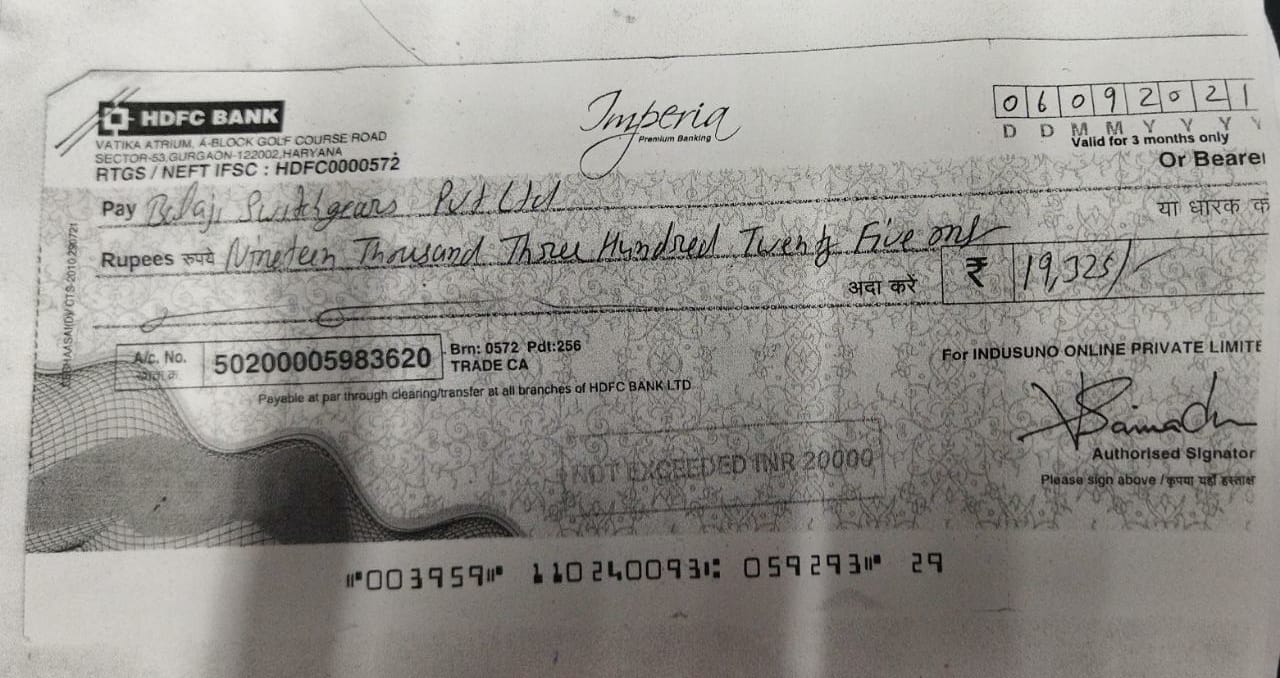 HDFC BANK
VATIKA ATRIUM, A-BLOCK GOLF COURSE ROAD
SECTOR-53,GURGAON-122002,HARYANA
RTGS / NEFT IFSC : HDFC0000572
Imperia
Premium Banking
0 6 0 9 2 0 2 1
D D M M Y Y Y Y
Valid for 3 months only
Or Bearer
Pay Balaji Switchgears Pvt Ltd
या धारक को
Rupees रुपये Nineteen Thousand Three Hundred Twenty Five only
अदा करें ₹ 19,325/-
A/c. No. 50200005983620
Brn: 0572 Pdt:256
TRADE CA
Payable at par through clearing/transfer at all branches of HDFC BANK LTD
For INDUSUNO ONLINE PRIVATE LIMITE
NOT EXCEEDED INR 20000
Authorised Signator
Please sign above / कृपया यहाँ हस्ताक्ष
⑈003959⑈ 110240093⑆ 059293⑈ 29